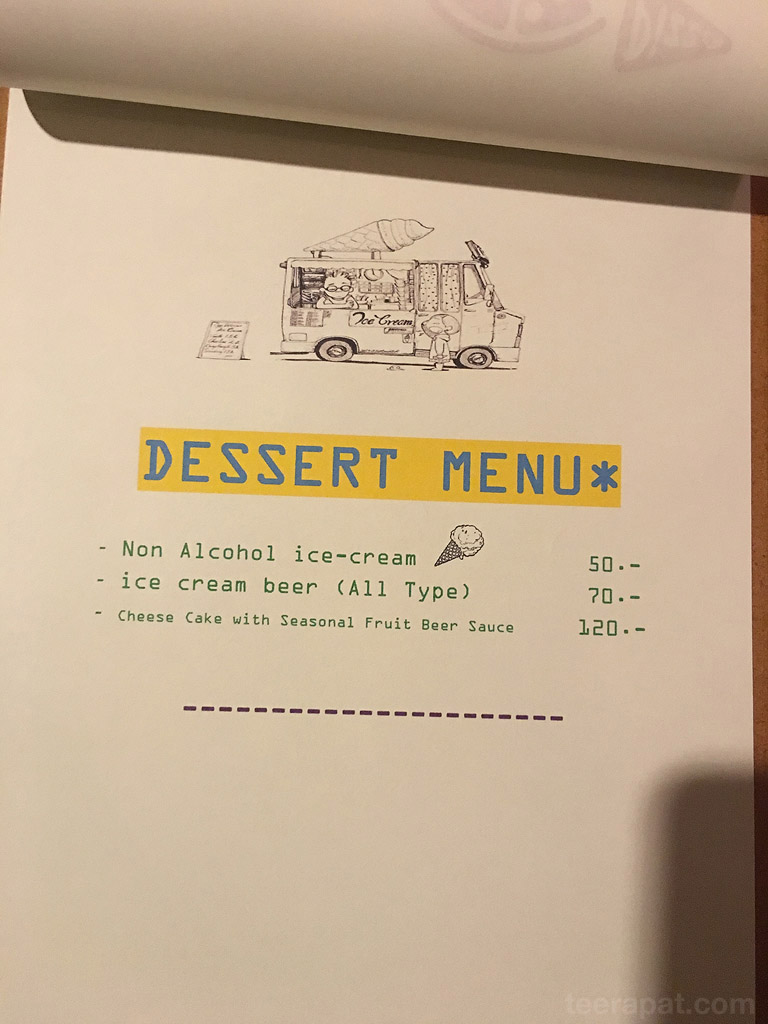 Ice Cream
DESSERT MENU*
- Non Alcohol ice-cream 50.-
- ice cream beer (All Type) 70.-
- Cheese Cake with Seasonal Fruit Beer Sauce 120.-
teerapat.com